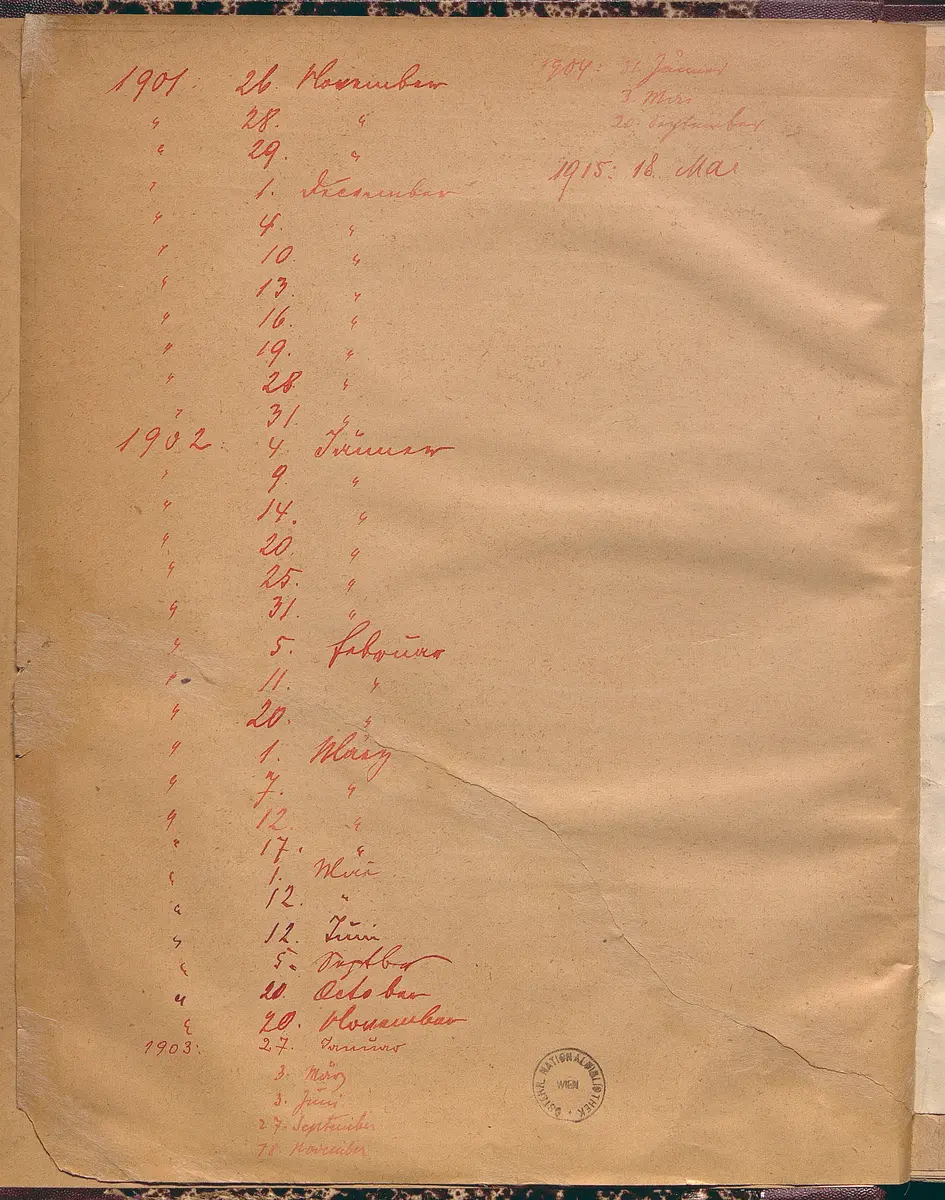 1901. 26. November
" 28. "
" 29. "
" 1. December
" 4. "
" 10. "
" 13. "
" 16. "
" 19. "
" 28. "
" 31. "
1902. 4. Jänner
" 9. "
" 14. "
" 20. "
" 25. "
" 31. "
" 5. Februar
" 11. "
" 20. "
" 1. März
" 7. "
" 12. "
" 17. "
" 1. Mai
" 12. "
" 12. Juni
" 5. Septber
" 20. October
" 20. November
1903: 27. Januar
3. März
3. Juni
27. September
18. November
1904: 31. Jänner
3. Mai
20. September
1915: 18. Mai
ÖSTERR. NATIONALBIBLIOTHEK
WIEN